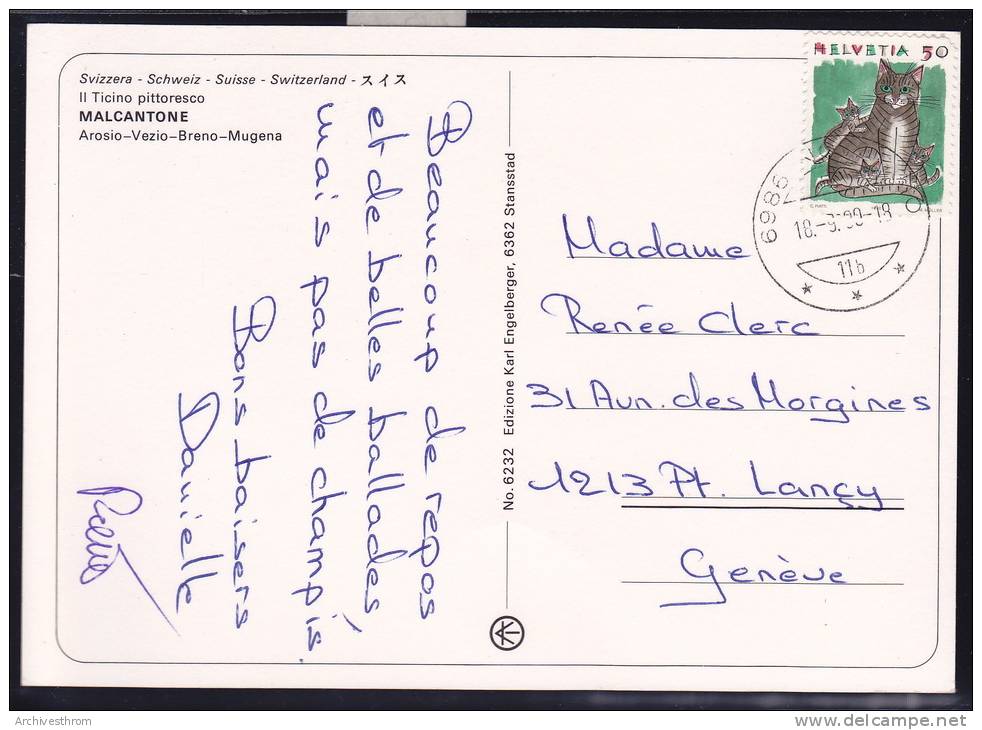 Svizzera - Schweiz - Suisse - Switzerland - スイス
Il Ticino pittoresco
MALCANTONE
Arosio-Vezio-Breno-Mugena
Beaucoup de repos
et de belles ballades,
mais pas de champis.
Bons baisers
Danielle
No. 6232 Edizione Karl Engelberger, 6362 Stansstad
HELVETIA 50
6986
11b
Madame
Renée Clerc
31 Avn. des Morgines
1213 Pt. Lançy
Genève
Archivesthrom
delcampe.net